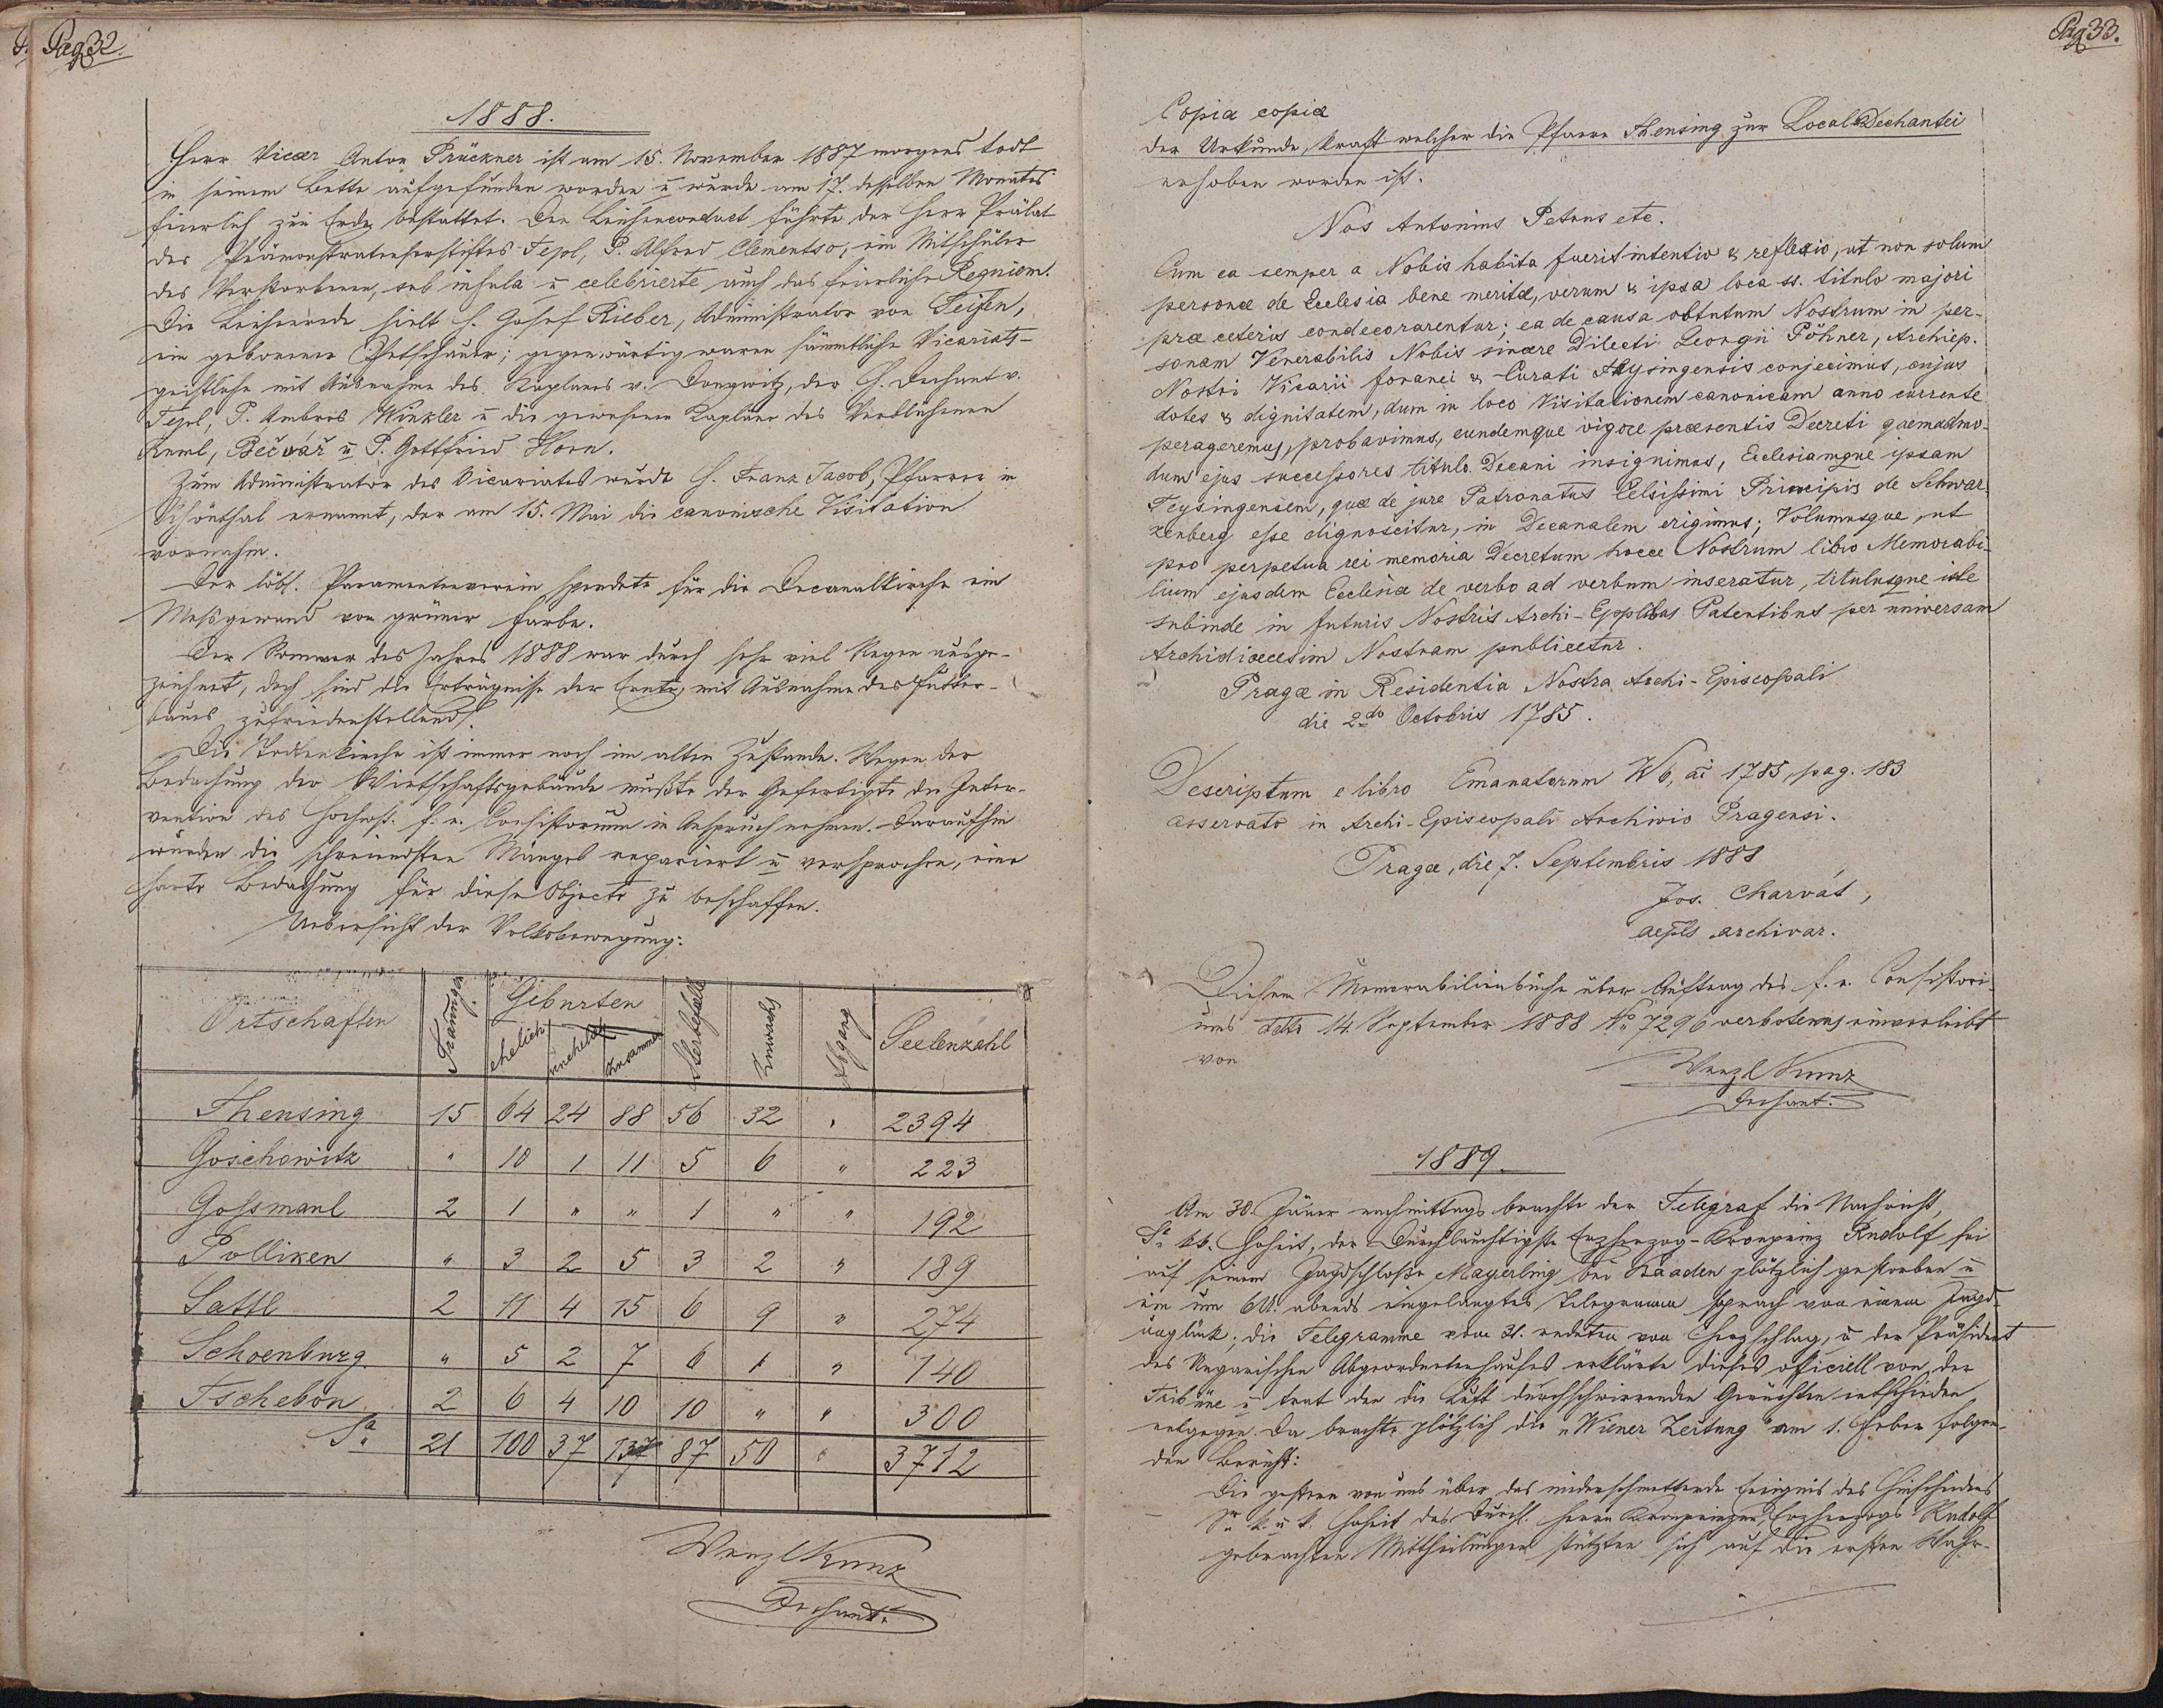 Pag 32.
1888.
Herr Vicar Anton Prückner ist am 15. November 1887 morgens todt
in seinem Bette aufgefunden worden u wurde am 17. desselben Monates
feierlich zur Erde bestattet. Den Leichenconduct führte der Herr Prälat
des Prämonstratenserstiftes Tepl, P. Alfred Clementso, ein Mitschüler
des Verstorbenen, sub infula u celebrierte auch das feierliche Requiem.
Die Leichenrede hielt H. Josef Rieber, Administrator von Seifen,
ein geborener Petschauer; gegenwärtig waren sämmtliche Vicariats-
geistliche mit Ausnahme des Kaplanes v. Donawitz, der H. Dechant v.
Tepl, P. Ambros Winkler u die gewesenen Kapläne des Verblichenen
Bečvář u P. Gottfried Horn.
Zum Administrator des Vicariates wurde H. Franz Jacob, Pfarrer in
Schönthal ernannt, der am 15. Mai die canonische Visitation
vornahm.
Der löbl. Paramentenverein spendete für die Decanalkirche ein
Messgewand von grüner Farbe.
Der Sommer des Jahres 1888 war durch sehr viel Regen ausge-
zeichnet, doch sind die Erträgnisse der Ernte, mit Ausnahme des Futter-
baues, zufriedenstellend.
Die Todtenkirche ist immer noch im alten Zustande. Wegen der
Bedachung der Wirtschaftsgebäude mußte der Gefertigte die Inter-
vention des Hochwst. f. e. Consistorium in Anspruch nehmen. Daraufhin
wurden die schreiendsten Mängel repariert u versprochen, eine
harte Bedachung für diese Objecte zu beschaffen.
Uebersicht der Volksbewegung:
Ortschaften Trauungen Geburten ehelich unehelich zusammen Sterbefälle Zuwachs Abgang Seelenzahl
Theusing 15 64 24 88 56 32 " 2394
Goschowitz " 10 1 11 5 6 " 223
Gossmaul 2 1 " " 1 " " 192
Polliken " 3 2 5 3 2 " 189
Sattl 2 11 4 15 6 9 " 274
Schoenburg " 5 2 7 6 1 " 140
Tschebon 2 6 4 10 10 " " 300
Sa 21 100 37 137 87 50 " 3712
Wenzl Kunz
Dechant.
Pag 33.
Copia copiæ
der Urkunde, kraft welcher die Pfarre Theusing zur Local-Dechantei
erhoben worden ist.
Nos Antonius Petrus etc.
Cum ea semper a Nobis habita fuerit intentio & reflexio, ut non solum
personæ de Ecclesia bene meritæ, verum & ipsa loca ss. titulo majori
præ ceteris condecorarentur; ea de causa obtutum Nostrum in per-
sonam Venerabilis Nobis sincere Dilecti Georgii Pöhner, Archiep.
Nostri Vicarii foranei & Curati Theysingensis conjecimus, cujus
dotes & dignitatem, dum in loco Visitationem canonicam anno currente
perageremus, probavimus, eundemque vigore præsentis Decreti quemadmo-
dum ejus successores titulo Decani insignimus, Ecclesiamque ipsam
Teysingensem, quæ de jure Patronatus Celsissimi Principis de Schwar-
zenberg esse dignoscitur, in Decanalem erigimus; Volumusque, ut
pro perpetua rei memoria Decretum hocce Nostrum libro Memorabi-
lium ejusdem Ecclesiæ de verbo ad verbum inseratur, titulusque iste
subinde in futuris Nostris Archi-Epplibus Patentibus per universam
Archidioecesim Nostram publicetur.
Pragæ in Residentia Nostra Archi-Episcopali
die 2do Octobris 1785.
Descriptum e libro Emanatorum W6, ai 1785, pag. 183
asservato in Archi-Episcopali Archivio Pragensi.
Pragæ, die 7. Septembris 1888
Jos. Charvát,
aepls archivar.
Diesem Memorabilienbuche über Auftrag des f. e. Consistori-
ums ddto 14. September 1888 No 7296 verbotenus einverleibt
von
Wenzl Kunz
Dechant.
1889.
Am 30. Jäner nachmittags brachte der Telegraf die Nachricht,
Se kk. Hoheit, der Durchlauchtigste Erzherzog-Kronprinz Rudolf sei
auf seinem Jagdschlosse Mayerling bei Baaden plötzlich gestorben u
ein um 6 U. abends eingelangtes Telegramm sprach von einem Jagd-
unglück; die Telegramme vom 31. redeten von Herzschlag, u der Präsident
des Ungarischen Abgeordnetenhauses erklärte dieses officiell von der
Tribüne u trat den die Luft durchschwirrenden Gerüchten entschieden
entgegen. Da brachte plötzlich die „Wiener Zeitung" am 1. Feber folgen-
den Bericht:
Die gestern von uns über das niederschmetternde Ereignis des Hinscheidens
Sr k. u k. Hoheit des Durchl. Herrn Kronprinzen, Erzherzogs Rudolf
gebrachten Mittheilungen stützten sich auf die ersten Wahr-